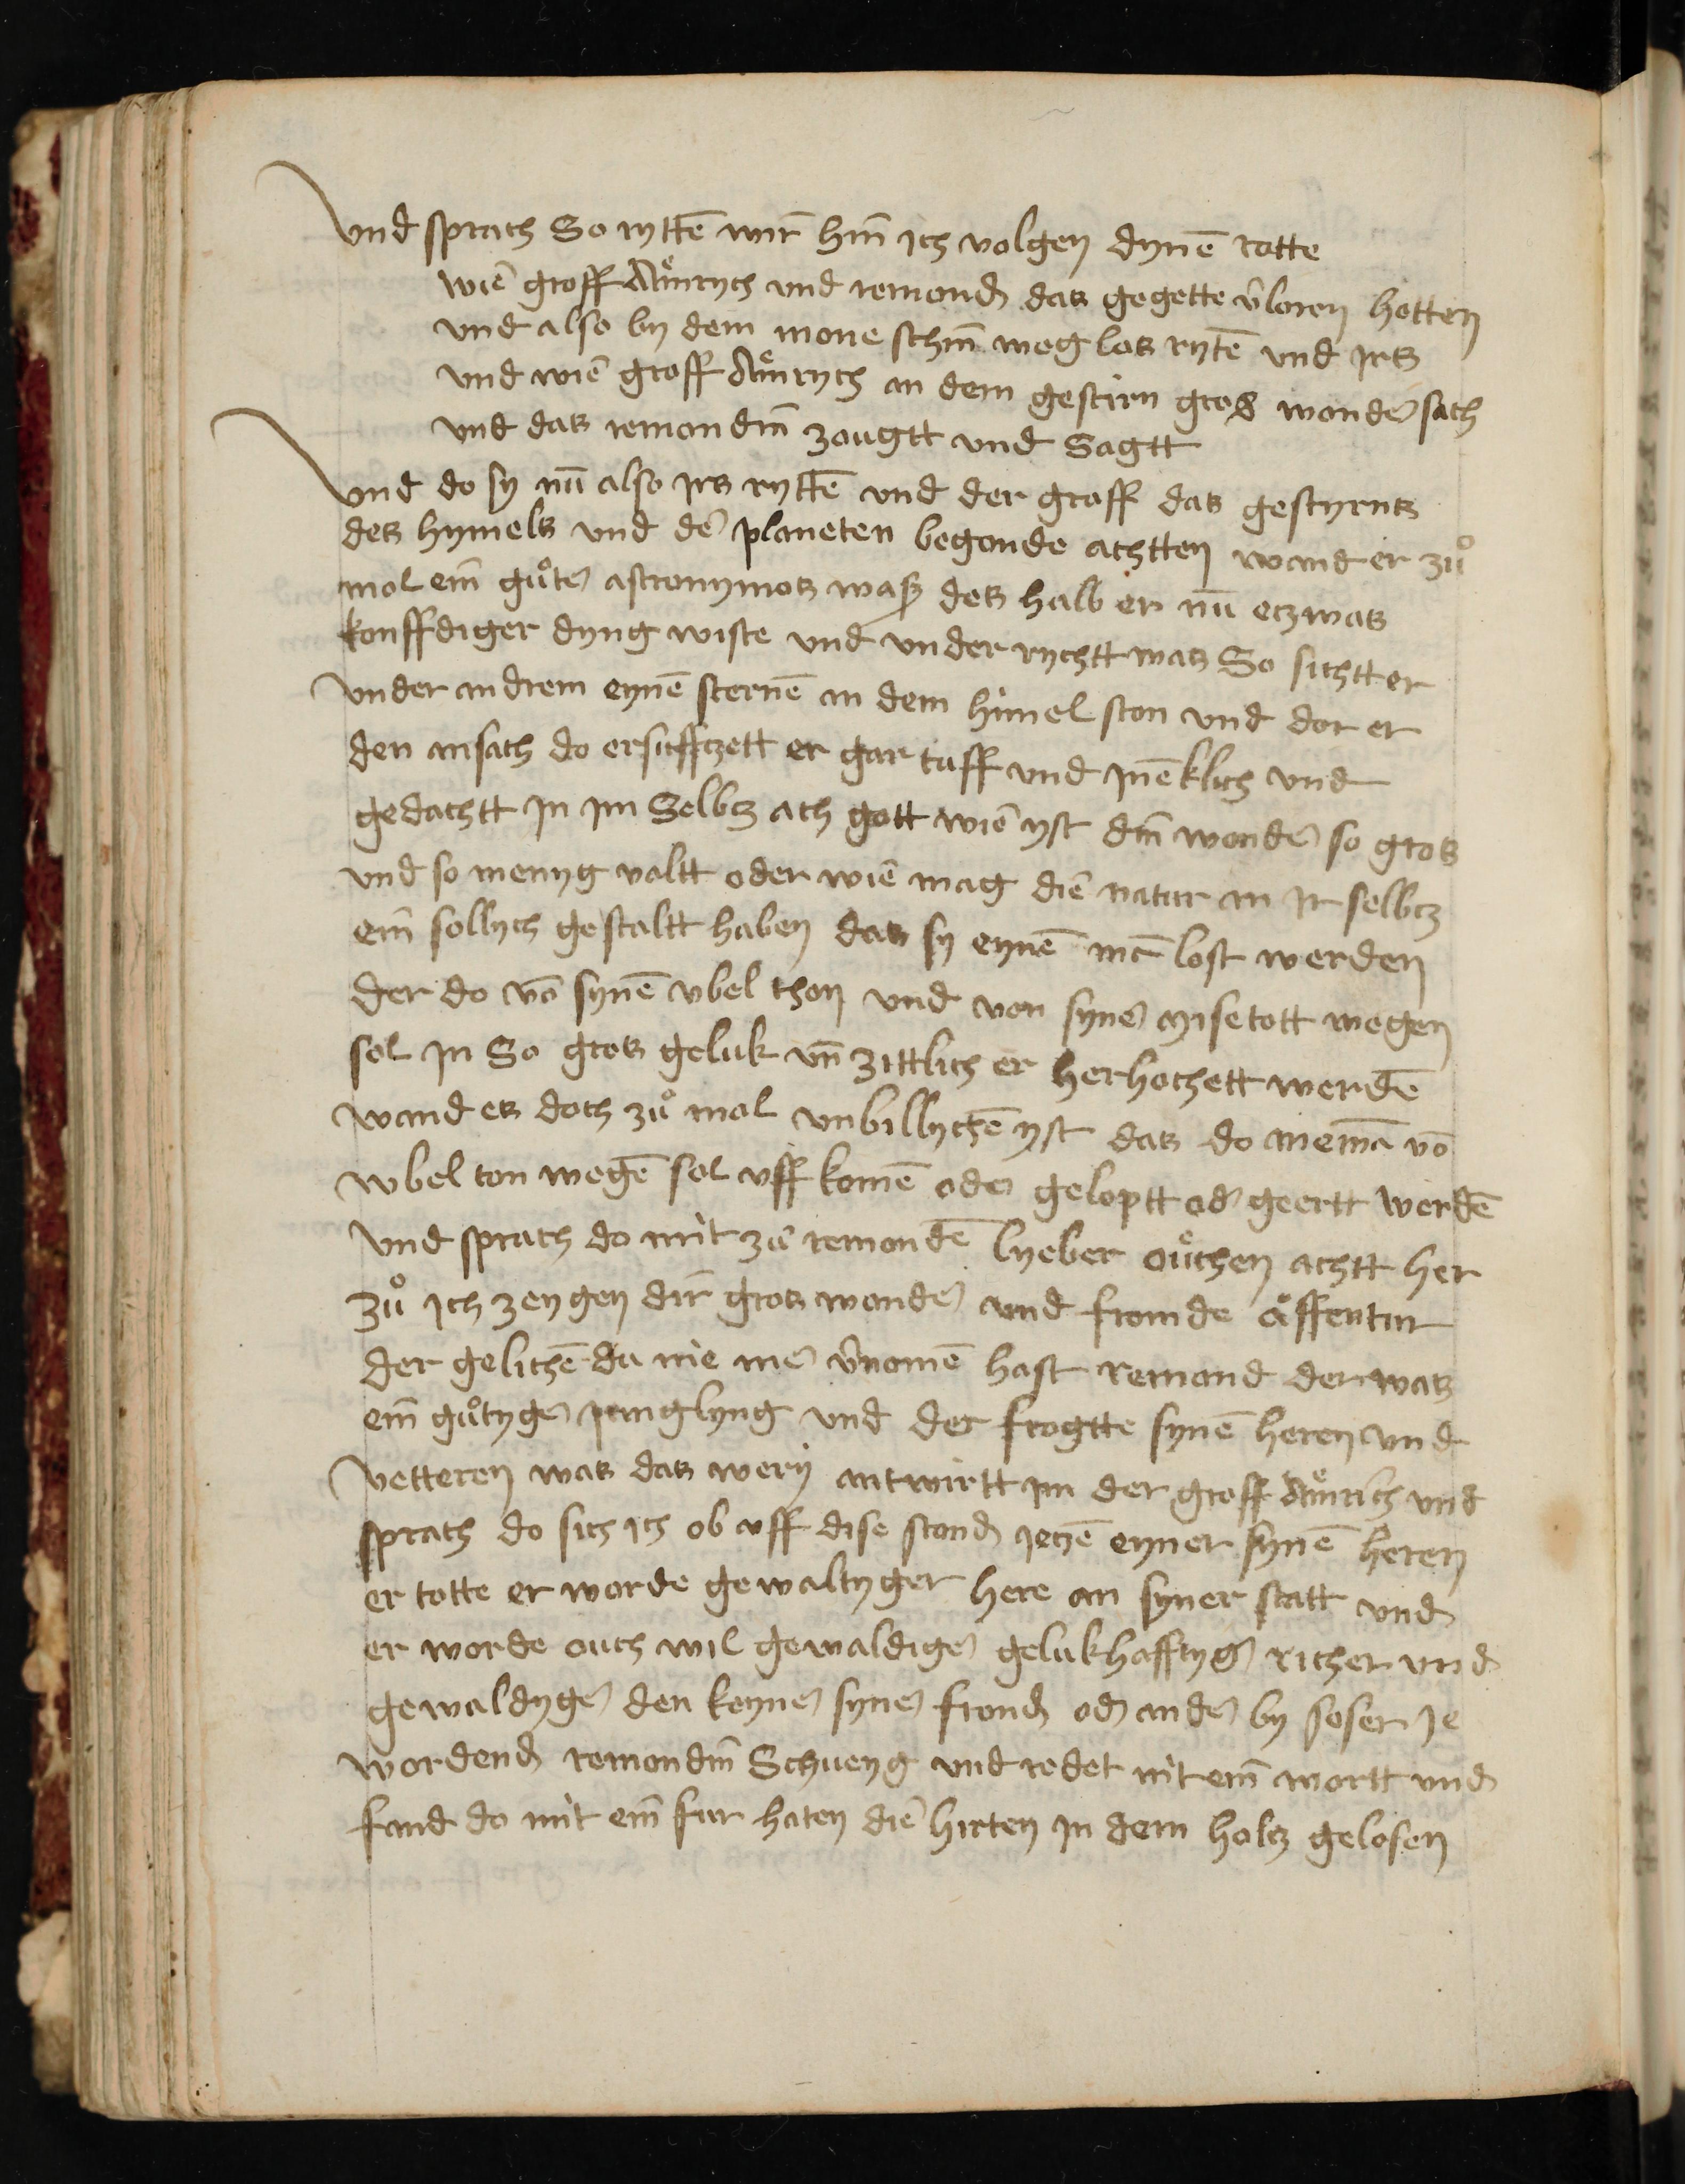 Vnd sprach So ryttē wir hin̄ ich volgen dynē ratte
wie graff Amͤrych vnd remond das gegette v̄loren hatten
vnd also by dem mone schin̄ weglos rytē vnd jrs
vnd wie graff Amͤrych an dem gestirn gros wonder sach
vnd das remondin̄ zougtt vnd Sagtt
Vnd do sy nū also jrs ryttē vnd der graff das gestyrns
des hymels vnd der planeten begonde achtten wand er zuͦ
mol ein̄ guͦter astronymos was des halb er nū etzwas
konffdiger dyng wiste vnd vnder rychtt was So sichtt er
vnder andrem eynē sternē an dem himel ston vnd dor er
den ansach do ersufftzett er gar tuff vnd jnēklich vnd
gedachtt jn im Selbtz ach gott wie yst din̄ wonder so gros
vnd so menyg valtt oder wie mag die natur an jr selbtz
ein̄ sollych gestaltt haben das sy eynē mē lost werden
der do vō synē vbel thon vnd von syner misetott wegen
sol jn So gros geluk vn̄ zittlich er herhochett werdē
wand es doch zuͦ mol vnbillychē yst das do niemā vō
wbel ton wegē sol vff komē oder geloptt oder geertt werdē
Vnd sprach do mit zuͦ remondē lyeber ouͤchen achtt her
zuͦ ich zeygen dir gros wonder vnd fromde aͤffentur
der gelichē du nie mer v̄nomē hast remond der was
ein̄ guͦtyger jungklyng vnd der frogtte synē heren vnd
vetteren was das wery antwirtt jm der graff Amͤrich vnd
sprach do sich ich ob vff dise stond jetzē eyner synē heren
er totte er worde gewaltyger here an syner statt vnd
er worde ouch wil gewaldiger gelukhafftyger richer vnd
gewaldyger den keyner syner frond oder ander by soser je
wordend remondin̄ Schueyg vnd redet nit ein̄ wortt vnd
fand do mit ein̄ fur haten die hirten jn dem holtz gelosen